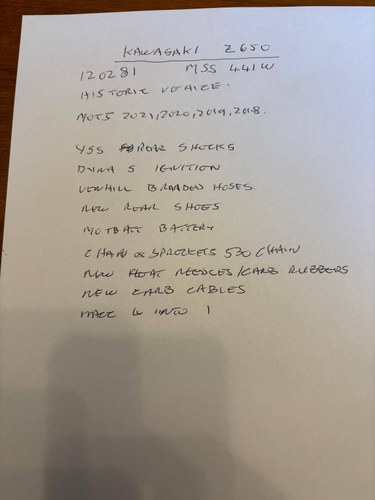 KAWASAKI Z650
120281 MSS 441W
HISTORIC VEHICLE.
MOTS 2021,2020,2019,2018.
YSS REAR SHOCKS
DYNA S IGNITION
VENHILL BRAIDED HOSES.
NEW REAR SHOES
MOTBATT BATTERY
CHAIN & SPROCKETS 530 CHAIN
NEW FLOAT NEEDLES/CARB RUBBERS
NEW CARB CABLES
MACC 4 INTO 1